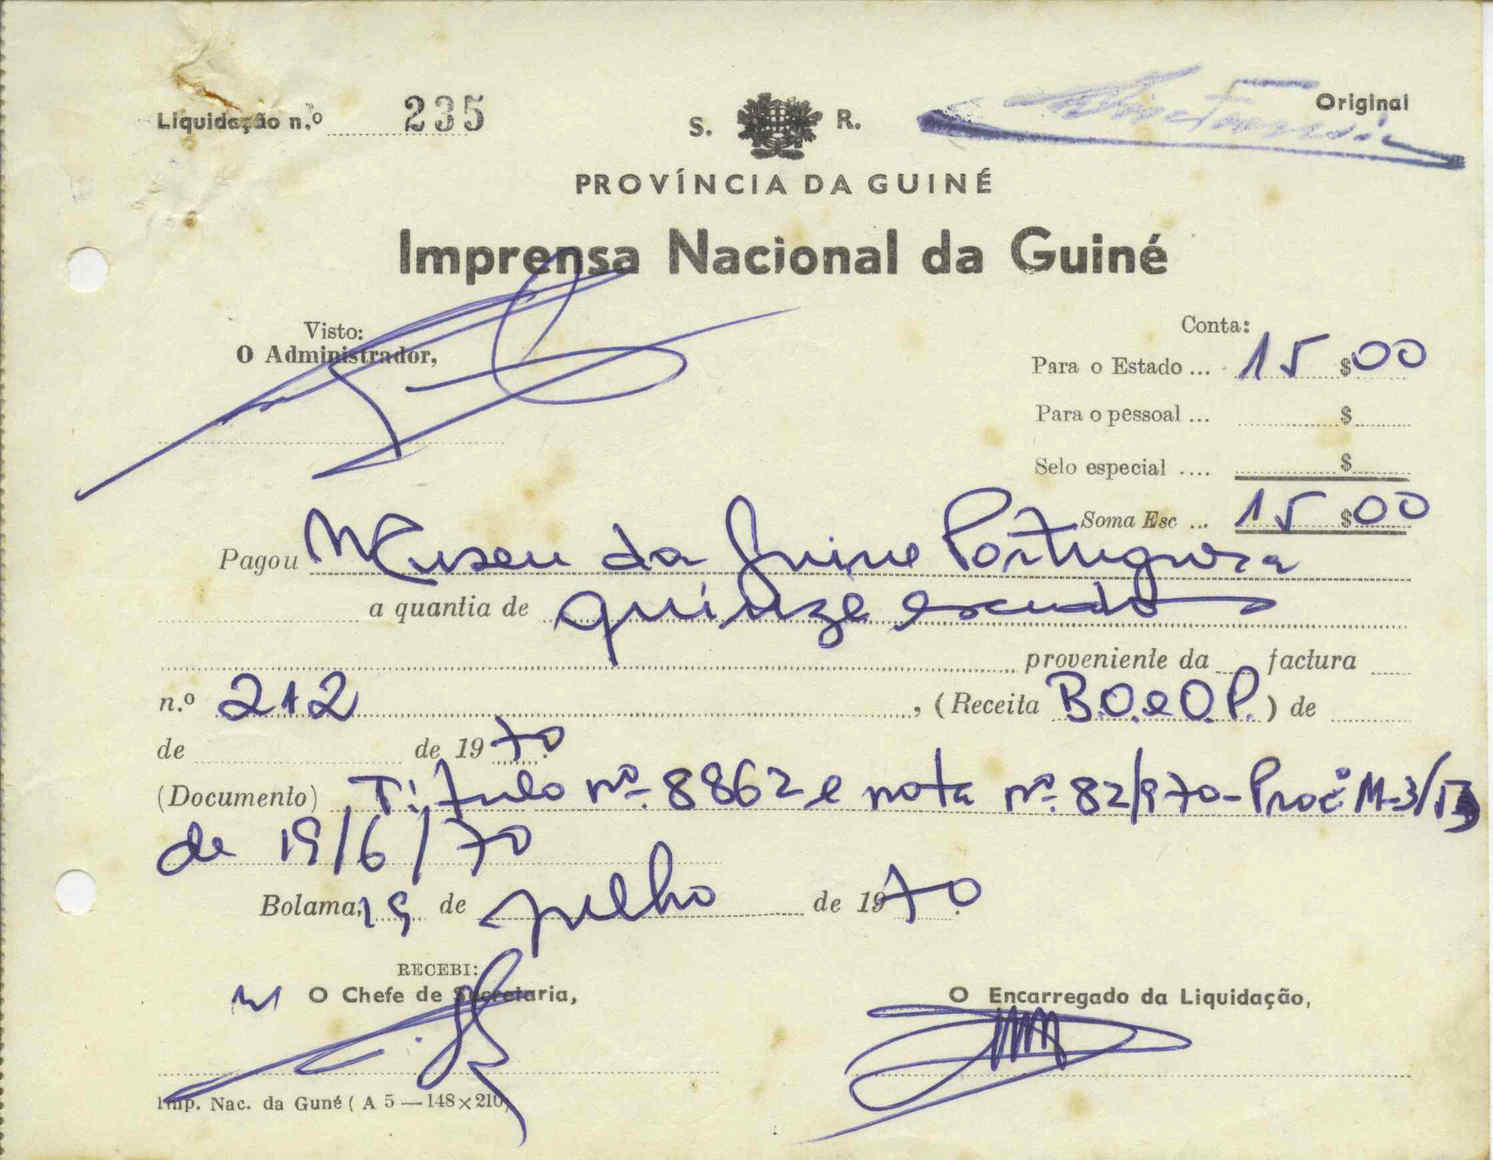 Liquidação n.º 235
S. R.
Original
PROVÍNCIA DA GUINÉ
Imprensa Nacional da Guiné
Visto:
O Administrador,
Conta:
Para o Estado ... 15 $00
Para o pessoal ... $
Selo especial .... $
Soma Esc ... 15 $00
Pagou Museu da Guine Portuguesa
a quantia de quinze escudos
proveniente da factura
n.º 212, (Receita B.O. e O.P.) de
de de 1970
(Documento) Titulo nº 8862 e nota nº 82/970 - Proc
de 19/6/70
Bolama, 19 de julho de 1970
RECEBI:
O Chefe de Secretaria,
O Encarregado da Liquidação,
Imp. Nac. da Guné ( A 5 — 148 × 210)